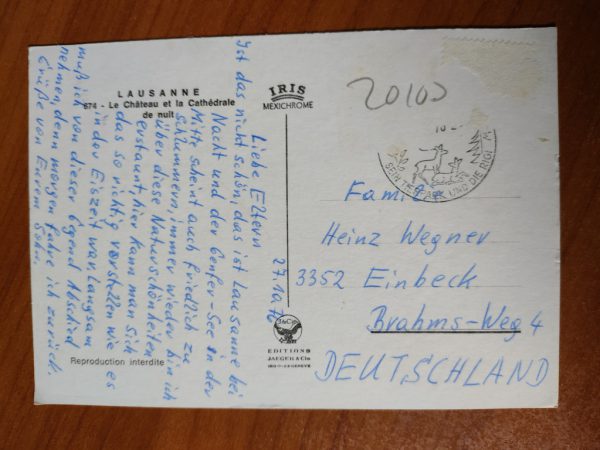 LAUSANNE
674 - Le Château et la Cathédrale
de nuit
IRIS
MEXICHROME
Liebe Eltern
Ist das nicht schön, das ist Lausanne bei
Nacht und der Genfer-See in der
Mitte scheint auch friedlich zu
schlummern, immer wieder bin ich
über diese Naturschönheiten
erstaunt, hier kann man sich
das so richtig vorstellen wie es
in der Eiszeit war. Langsam
muß ich von dieser Gegend Abschied
nehmen, denn morgen fahre ich zurück.
Grüße von Eurem Sohn.
Reproduction interdite
EDITIONS
JAEGER & Cie
20100
SEIN TIERPARK UND DIE RIGI
Familie
Heinz Wegner
3352 Einbeck
Brahms-Weg 4
DEUTSCHLAND